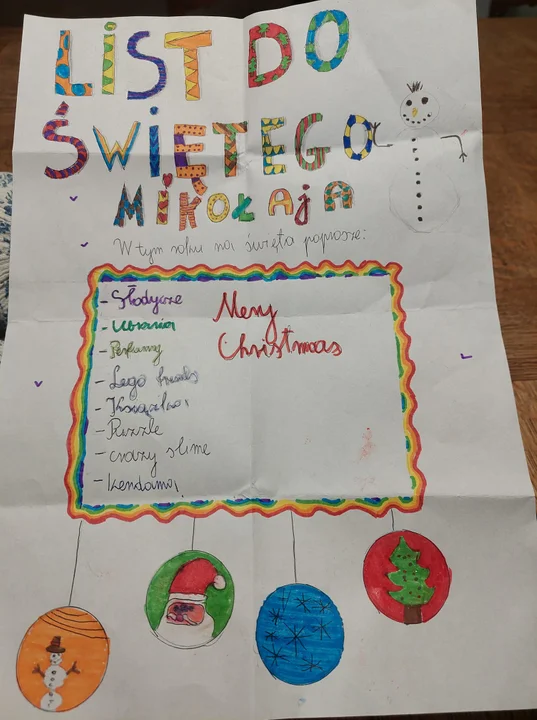 LiST DO
ŚWIĘTEGO
MiKOŁAjA
W tym roku na święta poproszę:
- Słodycze
- Ubrania
- Perfumy
- Lego friends
- Książka
- Puzzle
- crazy slime
- kendama
Mery
Christmas